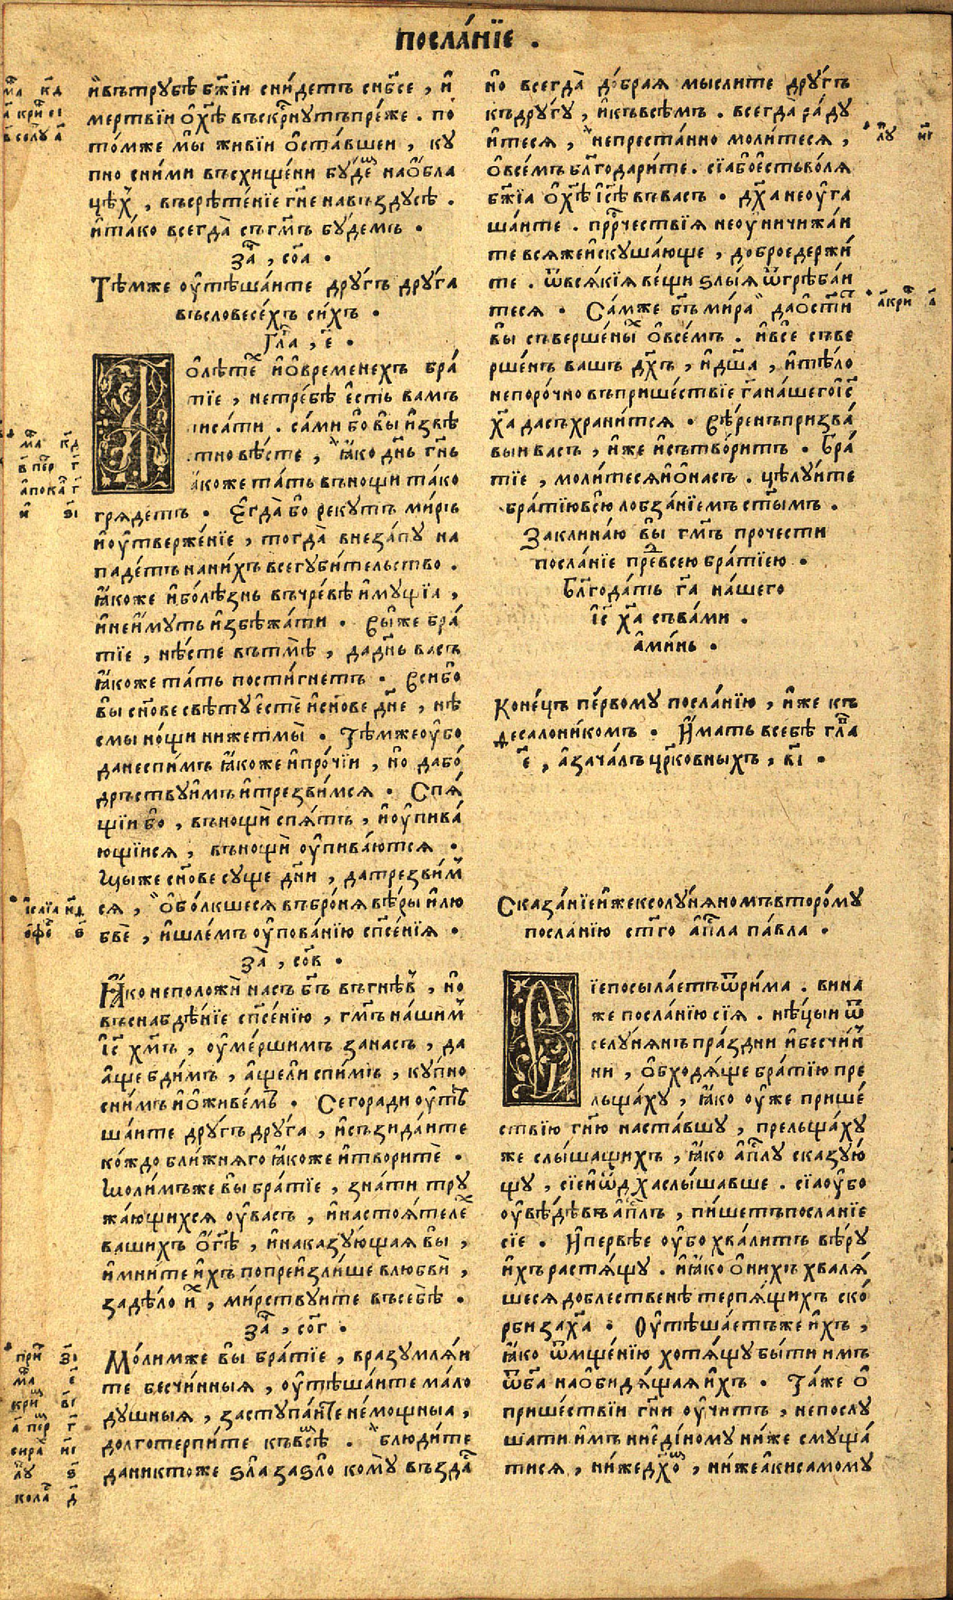 посла́нїе .
и҆вътрубѣ бж҃їи сни́детъ снб҃се , и҆
ме́ртвїи о҆хѣ҃ въскр҃нутъпре́же . по
то́мже мы̀ живїи о҆ста́вшеи , ку
пно сни́ми въсхище́ни бу́деⷨ наѡ҆бла
цѣⷯ , въсрѣ́тенїе гн҃е навъздусѣ .
и҆та́ко всегда̀ съгмⷭ҇ъ бу́демъ .
за҃ , со҃а .
Тѣ́мже оу҆тѣша́ите дру́гъ дру́га
въсловесе́хъ си́хъ .
гла҃ , е҃ .
Ѡ҆лѣ́теⷯ и҆ѡ҆вре́менехъ бра́
тїе , нетре́бѣ є҆сть ва́мъ
писа́ти . са́ми бо вы̀ и҆звѣ́
стновѣ́сте , ꙗ҆́ко дн҃ь гн҃ь
ꙗ҆́коже та́ть внощи та́ко
гряде́тъ . Є҆гда́ бо реку́тъ ми́ръ
и҆оу҆твержде́нїе , тогда̀ внеза́пу на
паде́тъ нани́хъ всегуби́тельство .
ꙗ҆́коже и҆болѣ́знь въчре́вѣ и҆му́щїа ,
и҆неи҆́муть и҆збѣжа́ти . Вы́же бра́
тїе , нѣ́сте вътмѣ̀ , дадн҃ь ва́съ
ꙗ҆́коже та́ть пости́гнетъ . Вси́бо
вы̀ сн҃ове свѣ́ту є҆стѐ и҆сн҃ове дн҃е , нѣ
смы но́щи нижетмы̀ . Тѣ́мжеоу҆бо
данеспи́мъ ꙗ҆́коже и҆про́чїи , но дабо́
дръствуимъ и҆трезви́мся . Спя́
щїи бо , внощѝ спя́тъ , и҆оу҆пива́
ющїися , внощѝ оу҆пива́ются .
Мы́же сн҃ове су́ще дн҃и , датрезви́м
ся , ѡ҆бо́лкшеся въброня̀ вѣ́ры и҆лю
бвѐ , и҆шле́мъ оу҆пова́нїю спⷭ҇е́нїя .
за҃ , со҃в .
Ꙗ҆́ко неположѝ на́съ бг҃ъ въгнѣ́въ , но
въснабдѣ́нїе спⷭ҇е́нїю , гмⷭ҇ъ на́шим
і҆с҃ хм҃ъ , оу҆ме́ршимъ зана́съ , да
а҆́ще бди́мъ , а҆́ще ли спи́мъ , ку́пно
сни́мъ и҆ѡ҆живе́мъ . Сегоради оу҆тѣ
ша́ите дру́гъ дру́га , и҆съзида́ите
ко́ждо бли́жняго ꙗ҆́коже и҆творитѐ .
Мо́лимъже вы̀ бра́тїе , зна́ти тру
жа́ющихся оу҆ва́съ , и҆настоя́телеⷯ
ва́шихъ ѡ҆гдⷭ҇ѣ , и҆наказу́ющая вы̀ ,
и҆мни́те и҆́хъ попреи҆зли́ше влюбвѝ ,
задѣ́ло и҆́ⷯ , ми́рствуите въсебѣ̀ .
за҃ , со҃г .
Мо́лимже вы̀ бра́тїе , вразумля́и
те бесчи́нныя , оу҆тѣша́ите мало
ду́шныя , заступа́ите не́мощныа ,
долготерпи́те къвсѣⷨ . блюди́те
даниктоже ѕла̀ заѕло̀ кому̀ възда́ⷭ
но всегда̀ до́брая мыслите дру́гъ
къдру́гу , и҆къвсѣ́мъ . всегда̀ ра́ду
итеся , непреста́нно моли́теся ,
ѡ҆все́мъ благодари́те . сїа́боє҆стьво́ля
бж҃їа о҆хѣ҃ і҆сѣ҃ вва́съ . дх҃а неоу҆га
ша́ите . прⷪ҇ро́чествїя неоу҆ничижа́и
те вся́же и҆скуша́юще , доброе держи́
те . ѿвся́кїя ве́щи ѕлы́я ѿгреба́и
теся . Са́мже бг҃ъ ми́ра даѡ҆ст҃и́т
вы̀ съверше́ны ѡ҆все́мъ . и҆всѐ съве
рше́нъ ва́шъ дх҃ъ , и҆дш҃а , и҆тѣ́ло
непоро́чно въприше́ствїе гⷭ҇а на́шего і҆с҃
хⷭ҇а да съхрани́тся . Вѣ́ренъ призва́
выи ва́съ , и҆́же и҆сътвори́тъ . Бра́
тїе , моли́теся и҆ѡ҆на́съ . цѣлу́ите
бра́тїю всю̀ лобза́нїемъ ст҃ы́мъ .
Заклина́ю вы̀ гмⷭ҇ъ прочести
посла́нїе преⷣвсе́ю бра́тїею .
Блг҃ода́ть гⷭ҇а на́шего
і҆с҃ хⷭ҇а съва́ми .
а҆ми́нь .
Коне́цъ пе́рвому посла́нїю , и҆́же къ
десалони́комъ . И҆́мать всебѣ̀ гла҃
е҃ , а҆зача́лъ црⷪ҇ко́вныхъ , в҃і .
Сказа́нїеи҆́жексолу́няномъвторо́му
посла́нїю ст҃го а҆пⷭ҇ла па́вла .
Сїе посыла́етъ ѿри́ма . вина́
же посла́нїю сїя . нѣ́цыи ѿ
селу́нянъ пра́здни и҆бесчи́н
ни , ѡ҆бходя́ще бра́тїю пре
льща́ху , ꙗ҆́ко оу҆же прише́
ствїю гн҃ю наста́вшу , прельща́ху
же слы́шащихъ , ꙗ҆́ко а҆пⷭ҇лу сказую́
щу , сїе и҆ѿдх҃а слы́шавше . сїа оу҆бо
оу҆вѣ́дѣвъ а҆пⷭ҇лъ , пи́шетъ посла́нїе
сїе . И҆пе́рвѣе оу҆бо хва́литъ вѣ́ру
и҆́хъ растя́щу . и҆ꙗ҆́ко ѡ҆ни́хъ хваля́
шеся до́блественѣ терпя́щихъ ско́
рби за хⷭ҇а . Оу҆тѣша́етъже и҆́хъ ,
ꙗ҆́ко ѿмще́нїю хотя́щу бы́ти и҆мъ
ѿбг҃а наѡ҆би́дящая и҆́хъ . Та́же ѡ҆
прише́ствїи гн҃и оу҆чи́тъ , непослу
шати и҆́мъ ниеди́ному ни́же смуща́
тися , ни́жедх҃омъ , ни́же а҆́ки самому